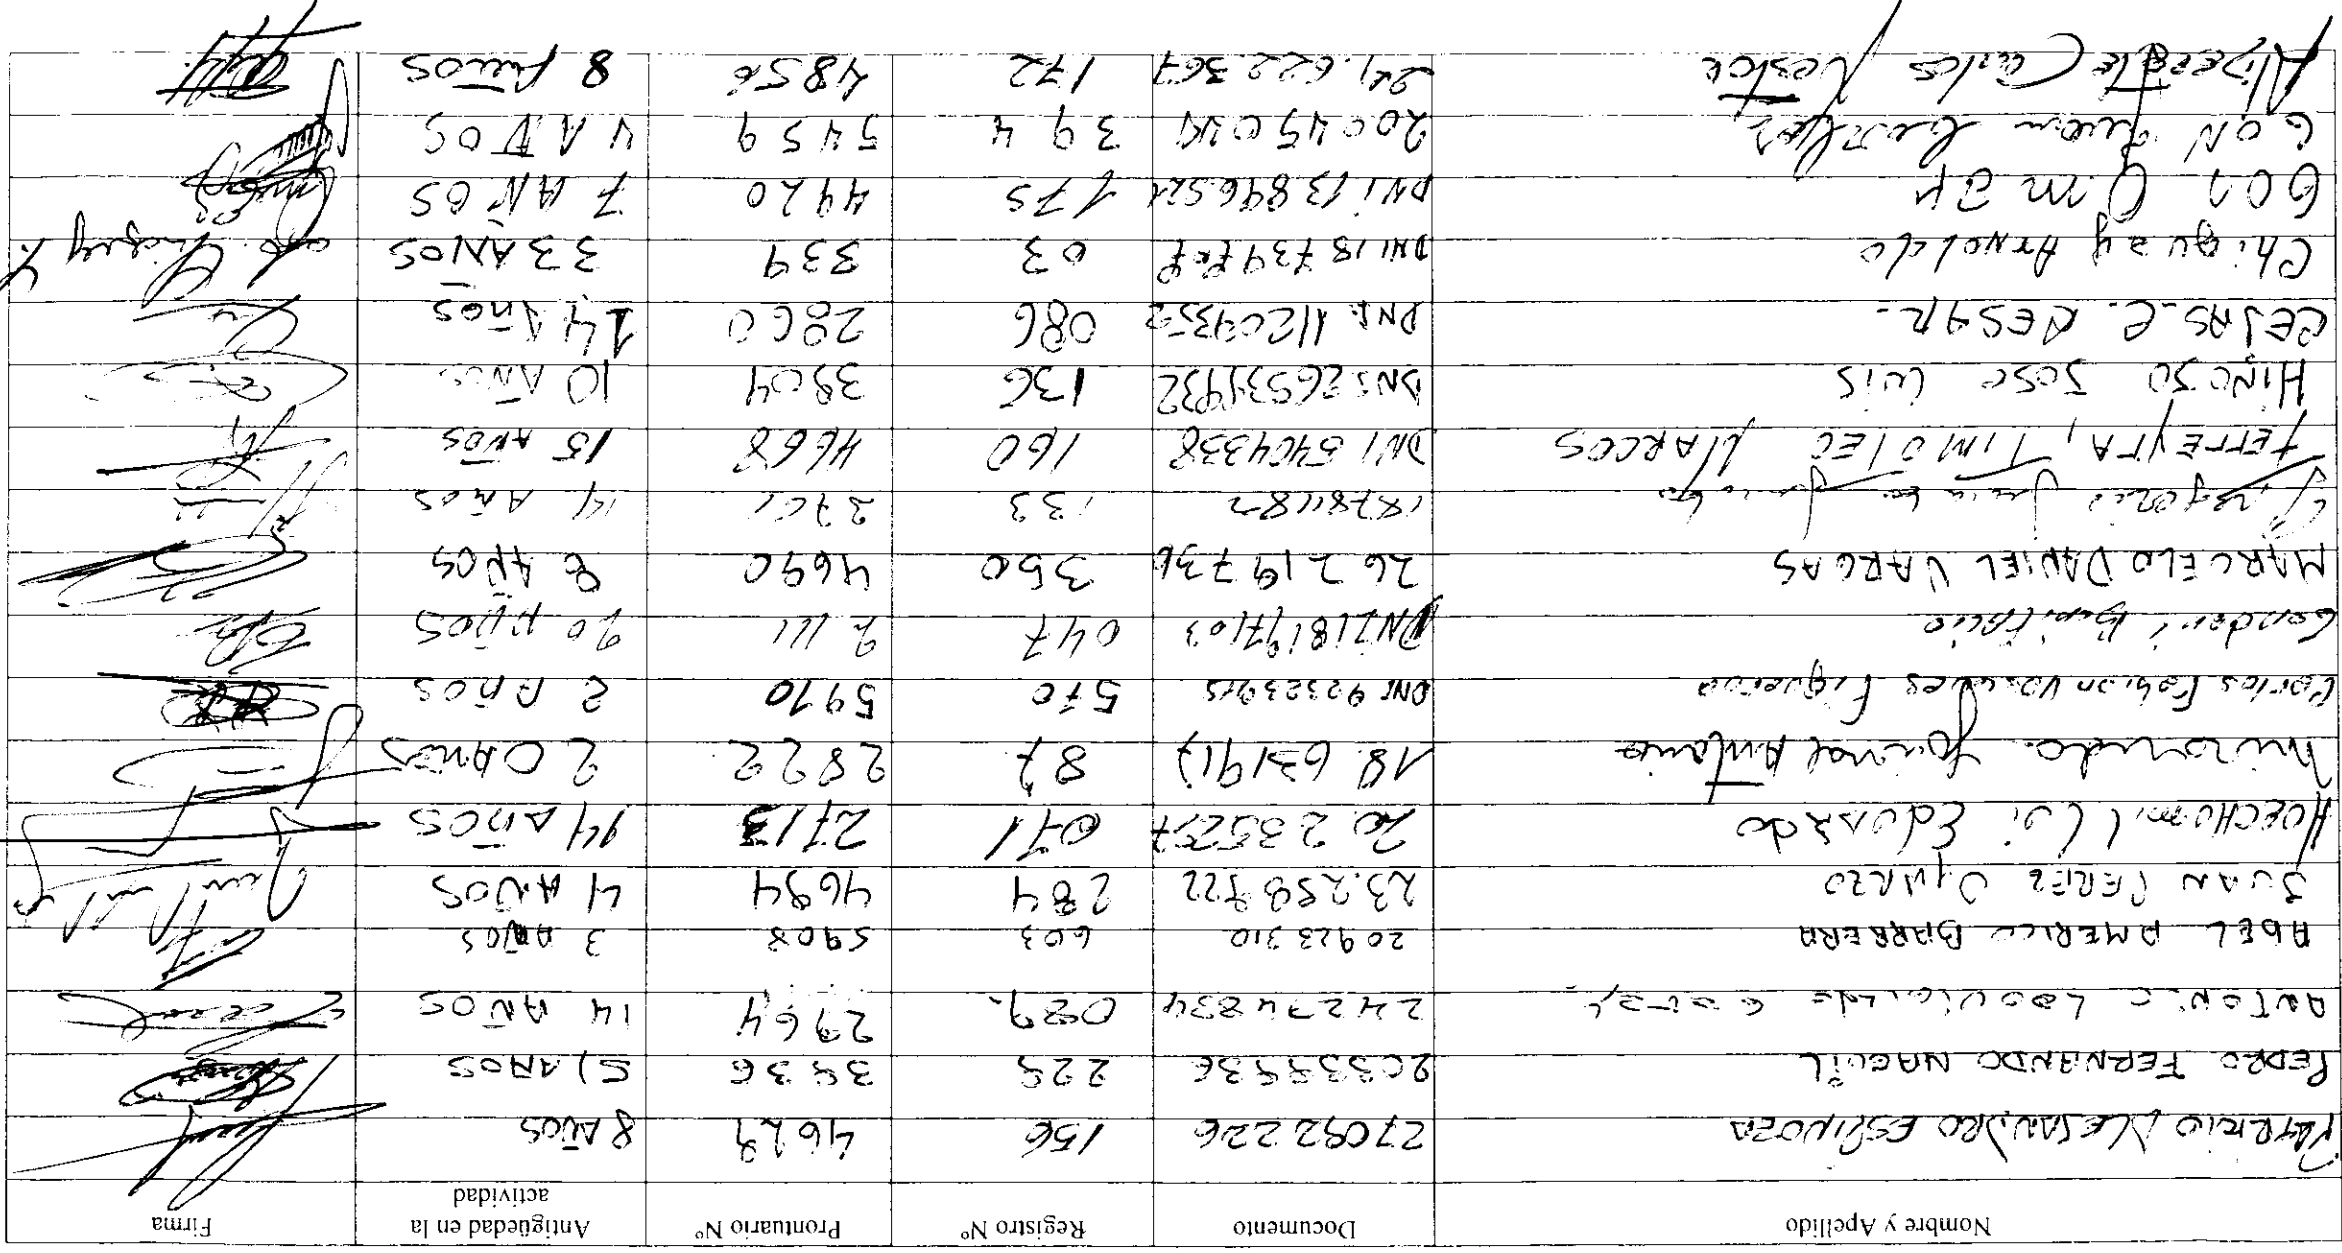 Nombre y Apellido Documento Registro Nº Prontuario Nº Antigüedad en la actividad Firma
PATRICIO ALEJANDRO ESPINOZA 27092226 156 4629 8 AÑOS
PEDRO FERNANDO NAGUIL 20339936 229 3936 5 AÑOS
ANTONIO 24274834 089 2964 14 AÑOS
ABEL AMERICO BARRERA 20923310 603 5908 3 AÑOS
JUAN PEREZ OYARZO 23.258922 284 4694 4 AÑOS
Eduardo 20.235257 071 2713 14 AÑOS
Antonio 18.631917 87 2822 20 AÑOS
Carlos Fabian Figueroa DNI 92323915 570 5970 2 AÑOS
047 2111 20 AÑOS
MARCELO DANIEL VARGAS 26219736 350 4690 8 AÑOS
133 14 AÑOS
FERREYRA, TIMOTEO MARCOS DNI 5404338 160 4668 15 AÑOS
HINOJO JOSE LUIS DNI 26539932 136 3804 10 AÑOS
CEJAS C. CESAR.- DNI 11209352 086 2860 14 AÑOS
Chiguay Arnoldo 03 339 33 AÑOS
Gon Omar DNI 13896521 175 4420 7 AÑOS
GON 394 5459 4 AÑOS
Carlos Nestor 24.622.367 172 4856 8 AÑOS